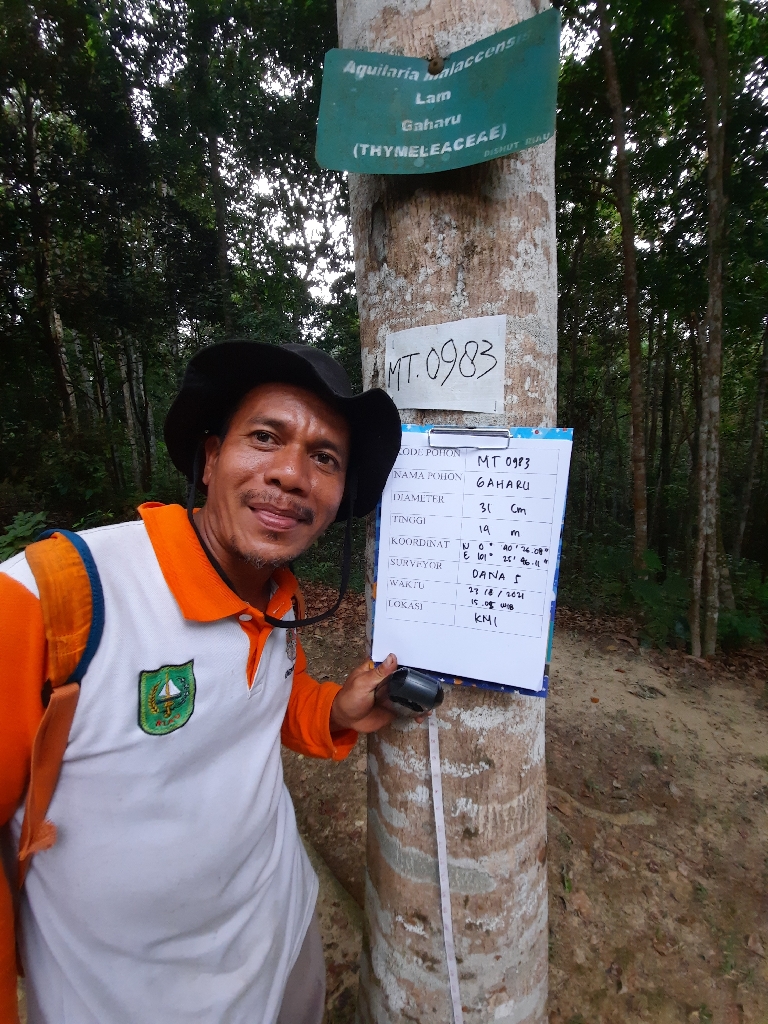 Aquilaria malaccensis
Lam
Gaharu
(THYMELEACEAE)
DISHUT RIAU
MT. 0983
KODE POHON MT 0983
NAMA POHON GAHARU
DIAMETER 31 Cm
TINGGI 19 m
KOORDINAT N 0° 40' 26.08"
E 101° 25' 46.11"
SURVEYOR DANA S
WAKTU 23/8/2021
15.05 WIB
LOKASI KM1
RIAU